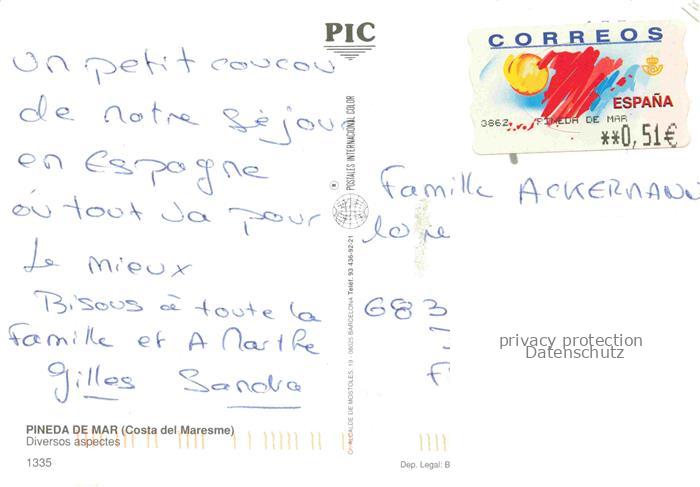 PIC
un petit coucou
de notre séjour
en Espagne
où tout va pour
le mieux
Bisous à toute la
famille et A Marthe
Gilles Sandra
PINEDA DE MAR (Costa del Maresme)
Diversos aspectes
1335
® POSTALES INTERNACIONAL COLOR
C/. ALCALDE DE MOSTOLES, 19 - 08025 BARCELONA Teléf. 93 436-92-21
Dep. Legal: B
CORREOS
ESPAÑA
0862 PINEDA DE MAR
**0,51€
Famille ACKERMANN
683
privacy protection
Datenschutz